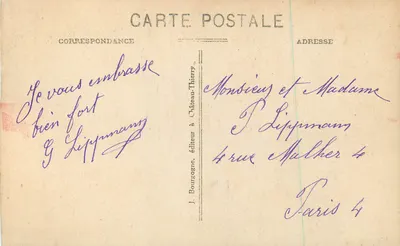 CARTE POSTALE
CORRESPONDANCE
ADRESSE
Je vous embrasse
bien fort
G Lippmann
J. Bourgogne, éditeur à Château-Thierry
Monsieur et Madame
P Lippmann
4 rue Malher 4
Paris 4